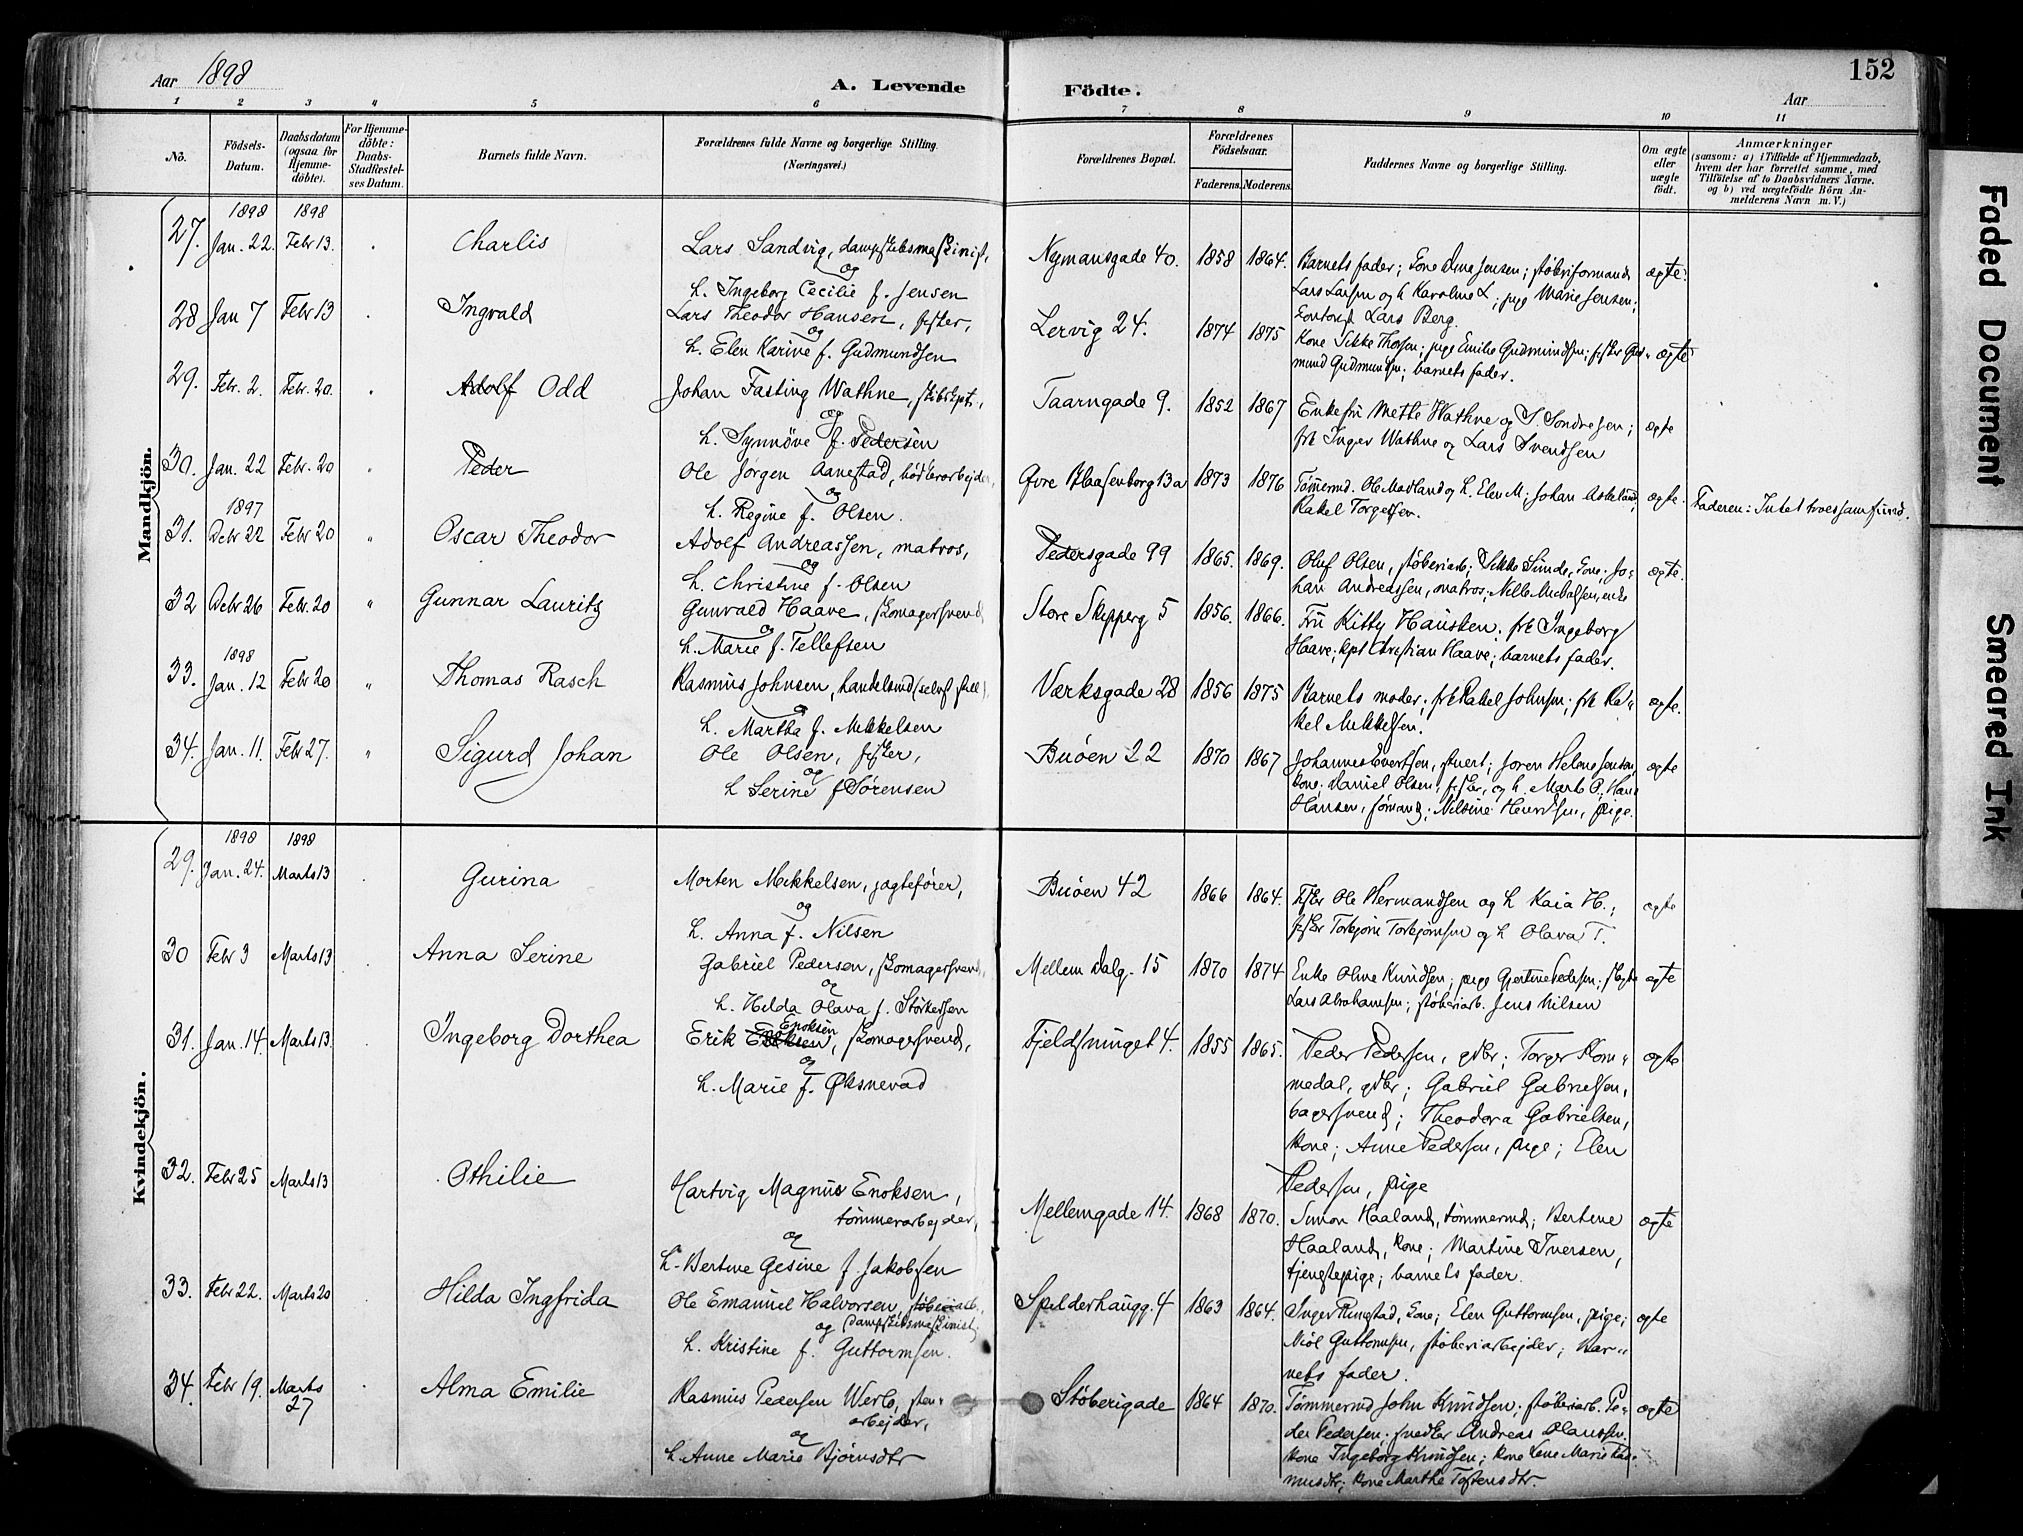 152
Aar 1898
A. Levende Födte.
Aar
1 2 3 4 5 6 7 8 9 10 11
No.
Födsels-Datum.
Daabsdatum (ogsaa for Hjemme-döbte).
For Hjemme-döbte: Daabs-Stadfæstel-ses Datum.
Barnets fulde Navn.
Forældrenes fulde Navne og borgerlige Stilling. (Næringsvei.)
Forældrenes Bopæl.
Forældrenes Födselsaar.
Faderens. Moderens.
Faddernes Navne og borgerlige Stilling.
Om ægte eller uægte födt.
Anmærkninger
(saasom: a) i Tilfælde af Hjemmedaab,
hvem der har forrettet samme, med
Tilföielse af to Daabsvidners Navne.
og b) ved uægtefödte Börn An-
melderens Navn m. V.)
Mandkjön.
1898 1898
27. Jan. 22. Febr 13. Charlis Lars Sandvig, dampskibsmaskinist, Nymansgade 40. 1858 1864. Barnets fader; Kone Jensen; støberiformand ægte.
og
h. Ingeborg Cecilie f. Jensen Lars Larsen og h Karoline L; pige Marie Jensen;
Lars Berg.
28 Jan 7 Febr 13 Ingvald Lars Theodor Hansen, fisker, Lervig 24. 1874 1875 Kone Sikke Thorsen; pige Emilie Gudmundsen; fisker Gud- ægte
og
h. Elen Karine f. Gudmundsen mund Gudmundsen; barnets fader.
29. Febr. 2. Febr. 20. " Adolf Odd Johan Fasting Wathne, skibskpt., Taarngade 9. 1852 1867 Enkefru Mette Wathne og S. Sondresen; ægte
og
h. Synnöve f. Pedersen frk Inger Wathne og Lars Svendsen
30. Jan. 22 Febr. 20 " Peder Ole Jørgen Aanestad, bødkerarbejder, Øvre Blaasenborg 13a 1873 1876 Tømmermd. Ole Madland og h. Elen M; Johan Askeland; ægte. Faderen: Intet troessamfund.
og
h. Regine f. Olsen. Rakel Torgersen.
1897
31. Debr 22 Febr 20 " Oscar Theodor Adolf Andreassen, matros, Pedersgade 99 1865. 1869. Oluf Olsen, støberiarb; Sikke Sunde, Kone; Jo- ægte.
og
h. Christine f. Olsen han Andreassen, matros; enke
32 Debr 26 Febr. 20 " Gunnar Lauritz Gunvald Haave, skomagersvend Store Skipperg 5 1856. 1866. Fru Kitty Hausken; frk Ingeborg
og
h. Marie f. Tellefsen Haave; kpt Christian Haave; barnets fader.
1898
33. Jan. 12 Febr 20 " Thomas Rasch Rasmus Johnsen, handelsmd (selvst. still). Værksgade 28 1856 1875 Barnets moder; frk Rakel Johnsen; frk Ra- ægte.
og
h. Martha f. Mikkelsen kel Mikkelsen.
34. Jan. 11. Febr 27. " Sigurd Johan Ole Olsen, fisker, Buøen 22 1870 1867 Johannes Evertsen, stuert; Joren Helene Jensen, ægte
og
h Serine f Sørensen kone; Daniel Olsen, fisker, og h. Marte O; Hans
Hansen, sømand; Nilsine Henriksen, pige.
Kvindekjön.
1898 1898
29. Jan. 24. Marts 13 Gurina Morten Mikkelsen, jagtefører, Buøen 42 1866 1864. Fisker Ole Hermandsen og h Kaia H.; ægte
og
h. Anna f. Nilsen fisker Torbjørn Torbjørnsen og h Olava T.
30 Febr 3 Marts 13 Anna Serine Gabriel Pedersen, skomagersvend, Mellem Dalg. 15 1870 1874 Enke Oline Knudsen; pige Gjertine Pedersen; ægte
og
h. Hilda Olava f. Størkersen Lars Abrahamsen; støberiarb. Jens Nilsen
31. Jan. 14. Marts 13. Ingeborg Dorthea Erik Enoksen, skomagersvend, Fjeldsmuget 4. 1855 1865. Peder Pedersen, gdbr; Torger Kom- ægte
og
h. Marie f. Øksnevad medal, gdbr; Gabriel Gabrielsen,
bagersvend; Theodora Gabrielsen,
kone; Anne Pedersen, pige; Elen
Pedersen, pige
32. Febr 25 Marts 13 Othilie Hartvig Magnus Enoksen, Mellemgade 14. 1868 1870. Simon Haaland, tømmermd; Bertine ægte
tömmerarbejder,
og Haaland, kone; Martine Iversen,
h. Bertine Gesine f. Jakobsen tjenestepige; barnets fader.
33. Febr 22. Marts 20 Hilda Ingfrida Ole Emanuel Halvorsen, støberiarb., Spilderhaugg. 4 1863 1864. Inger Ringstad, kone; Elen Guttormsen, pige; ægte
og dampskibsmaskinist,
h. Kristine f. Guttormsen. Niöl Guttormsen, støberiarbejder; Bar-
nets fader.
34. Febr 19. Marts 27 Alma Emilie Rasmus Pedersen Werlo, sten- Støberigade 1864 1870. Tömmermd John Knudsen; støberiarb. Pe- ægte
arbejder,
og der Pedersen; snedker Andreas Olaussen.
h. Anne Marie Bjørnsdtr kone Ingeborg Knudsen; kone Lene Marie Ras-
musdtr; kone Marthe Tostensdtr.
Faded Document
Smeared Ink